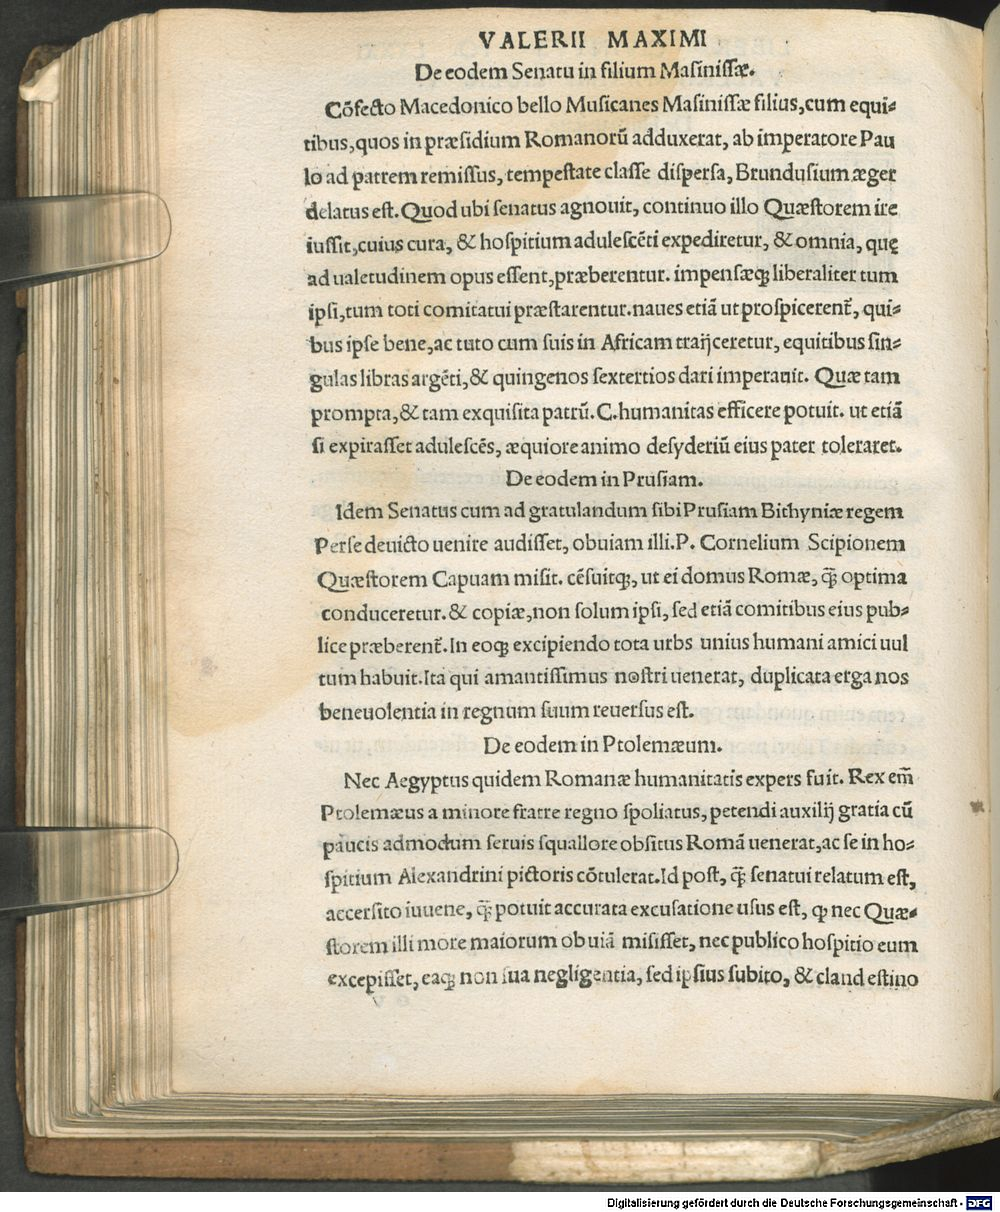 VALERII MAXIMI
De eodem Senatu in filium Masinissæ.
Cōfecto Macedonico bello Musicanes Masinissæ filius, cum equi-
tibus, quos in præsidium Romanorū adduxerat, ab imperatore Pau
lo ad patrem remissus, tempestate classe dispersa, Brundusium æger
delatus est. Quod ubi senatus agnouit, continuo illo Quæstorem ire
iussit, cuius cura, & hospitium adulescēti expediretur, & omnia, quę
ad ualetudinem opus essent, præberentur. impensæq; liberaliter tum
ipsi, tum toti comitatui præstarentur. naues etiā ut prospicerent̃, qui-
bus ipse bene, ac tuto cum suis in Africam traijceretur, equitibus sin-
gulas libras argēti, & quingenos sextertios dari imperauit. Quæ tam
prompta, & tam exquisita patrū. C. humanitas efficere potuit. ut etiā
si expirasset adulescēs, æquiore animo desyderiū eius pater toleraret.
De eodem in Prusiam.
Idem Senatus cum ad gratulandum sibi Prusiam Bithyniæ regem
Perse deuicto uenire audisset, obuiam illi. P. Cornelium Scipionem
Quæstorem Capuam misit. cēsuitq;, ut ei domus Romæ, q̃ optima
conduceretur. & copiæ, non solum ipsi, sed etiā comitibus eius pub-
lice præberent̃. In eoq; excipiendo tota urbs unius humani amici uul
tum habuit. Ita qui amantissimus nostri uenerat, duplicata erga nos
beneuolentia in regnum suum reuersus est.
De eodem in Ptolemæum.
Nec Aegyptus quidem Romanæ humanitatis expers fuit. Rex em̃
Ptolemæus a minore fratre regno spoliatus, petendi auxilij gratia cū
paucis admodum seruis squallore obsitus Romā uenerat, ac se in ho-
spitium Alexandrini pictoris cōtulerat. Id post, q̃ senatui relatum est,
accersito iuuene, q̃ potuit accurata excusatione usus est, ꝙ nec Quæ-
storem illi more maiorum obuiā misisset, nec publico hospitio eum
excepisset, eaq; non sua negligentia, sed ipsius subito, & cland estino
Digitalisierung gefördert durch die Deutsche Forschungsgemeinschaft - DFG